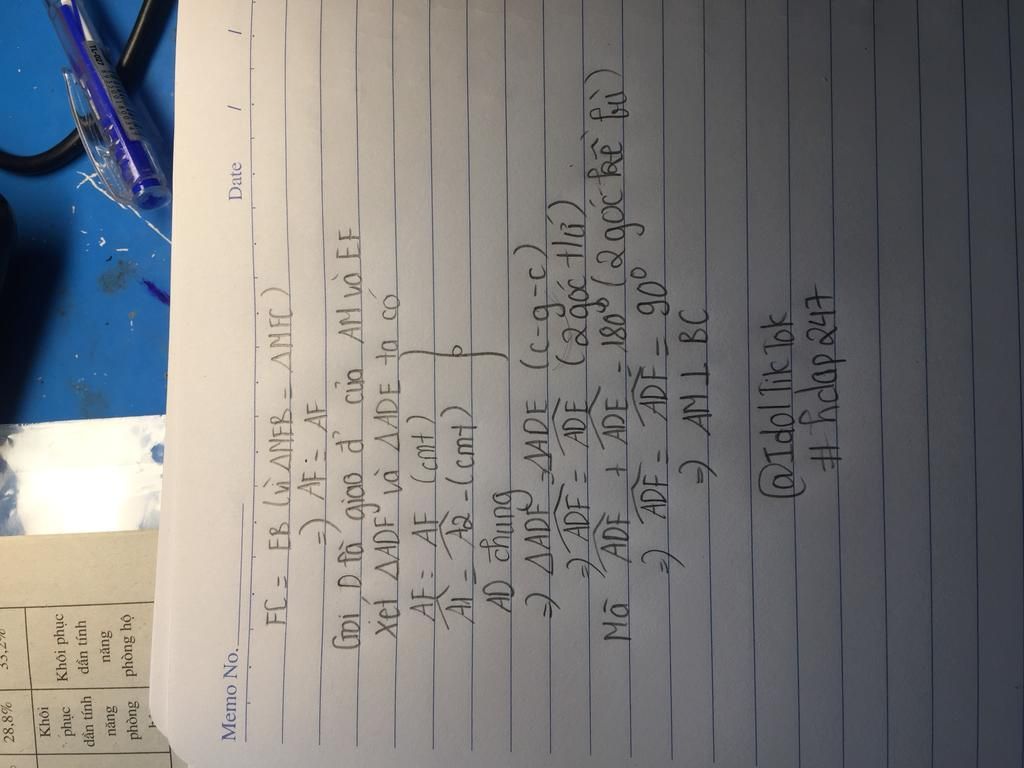 Memo No.
Date / /
FC = EB (vì ΔMEB = ΔMFC)
=) AE = AF
Gọi D là giao đ' của AM và EF
Xét ΔADF và ΔADE ta có
AE = AF (cmt)
A1 = A2 - (cmt)
AD chung
=) ΔADF = ΔADE (c-g-c)
=) ADF = ADE (2 góc t/ứ)
Mà ADF + ADE = 180° (2 góc kề bù)
=) ADF = ADF = 90°
=) AM ⊥ BC
@IdolTikTok
#hdap247
28.8%
33,2%
Khôi phục dấn tính năng phòng
Khôi phục dấn tính năng phòng hộ